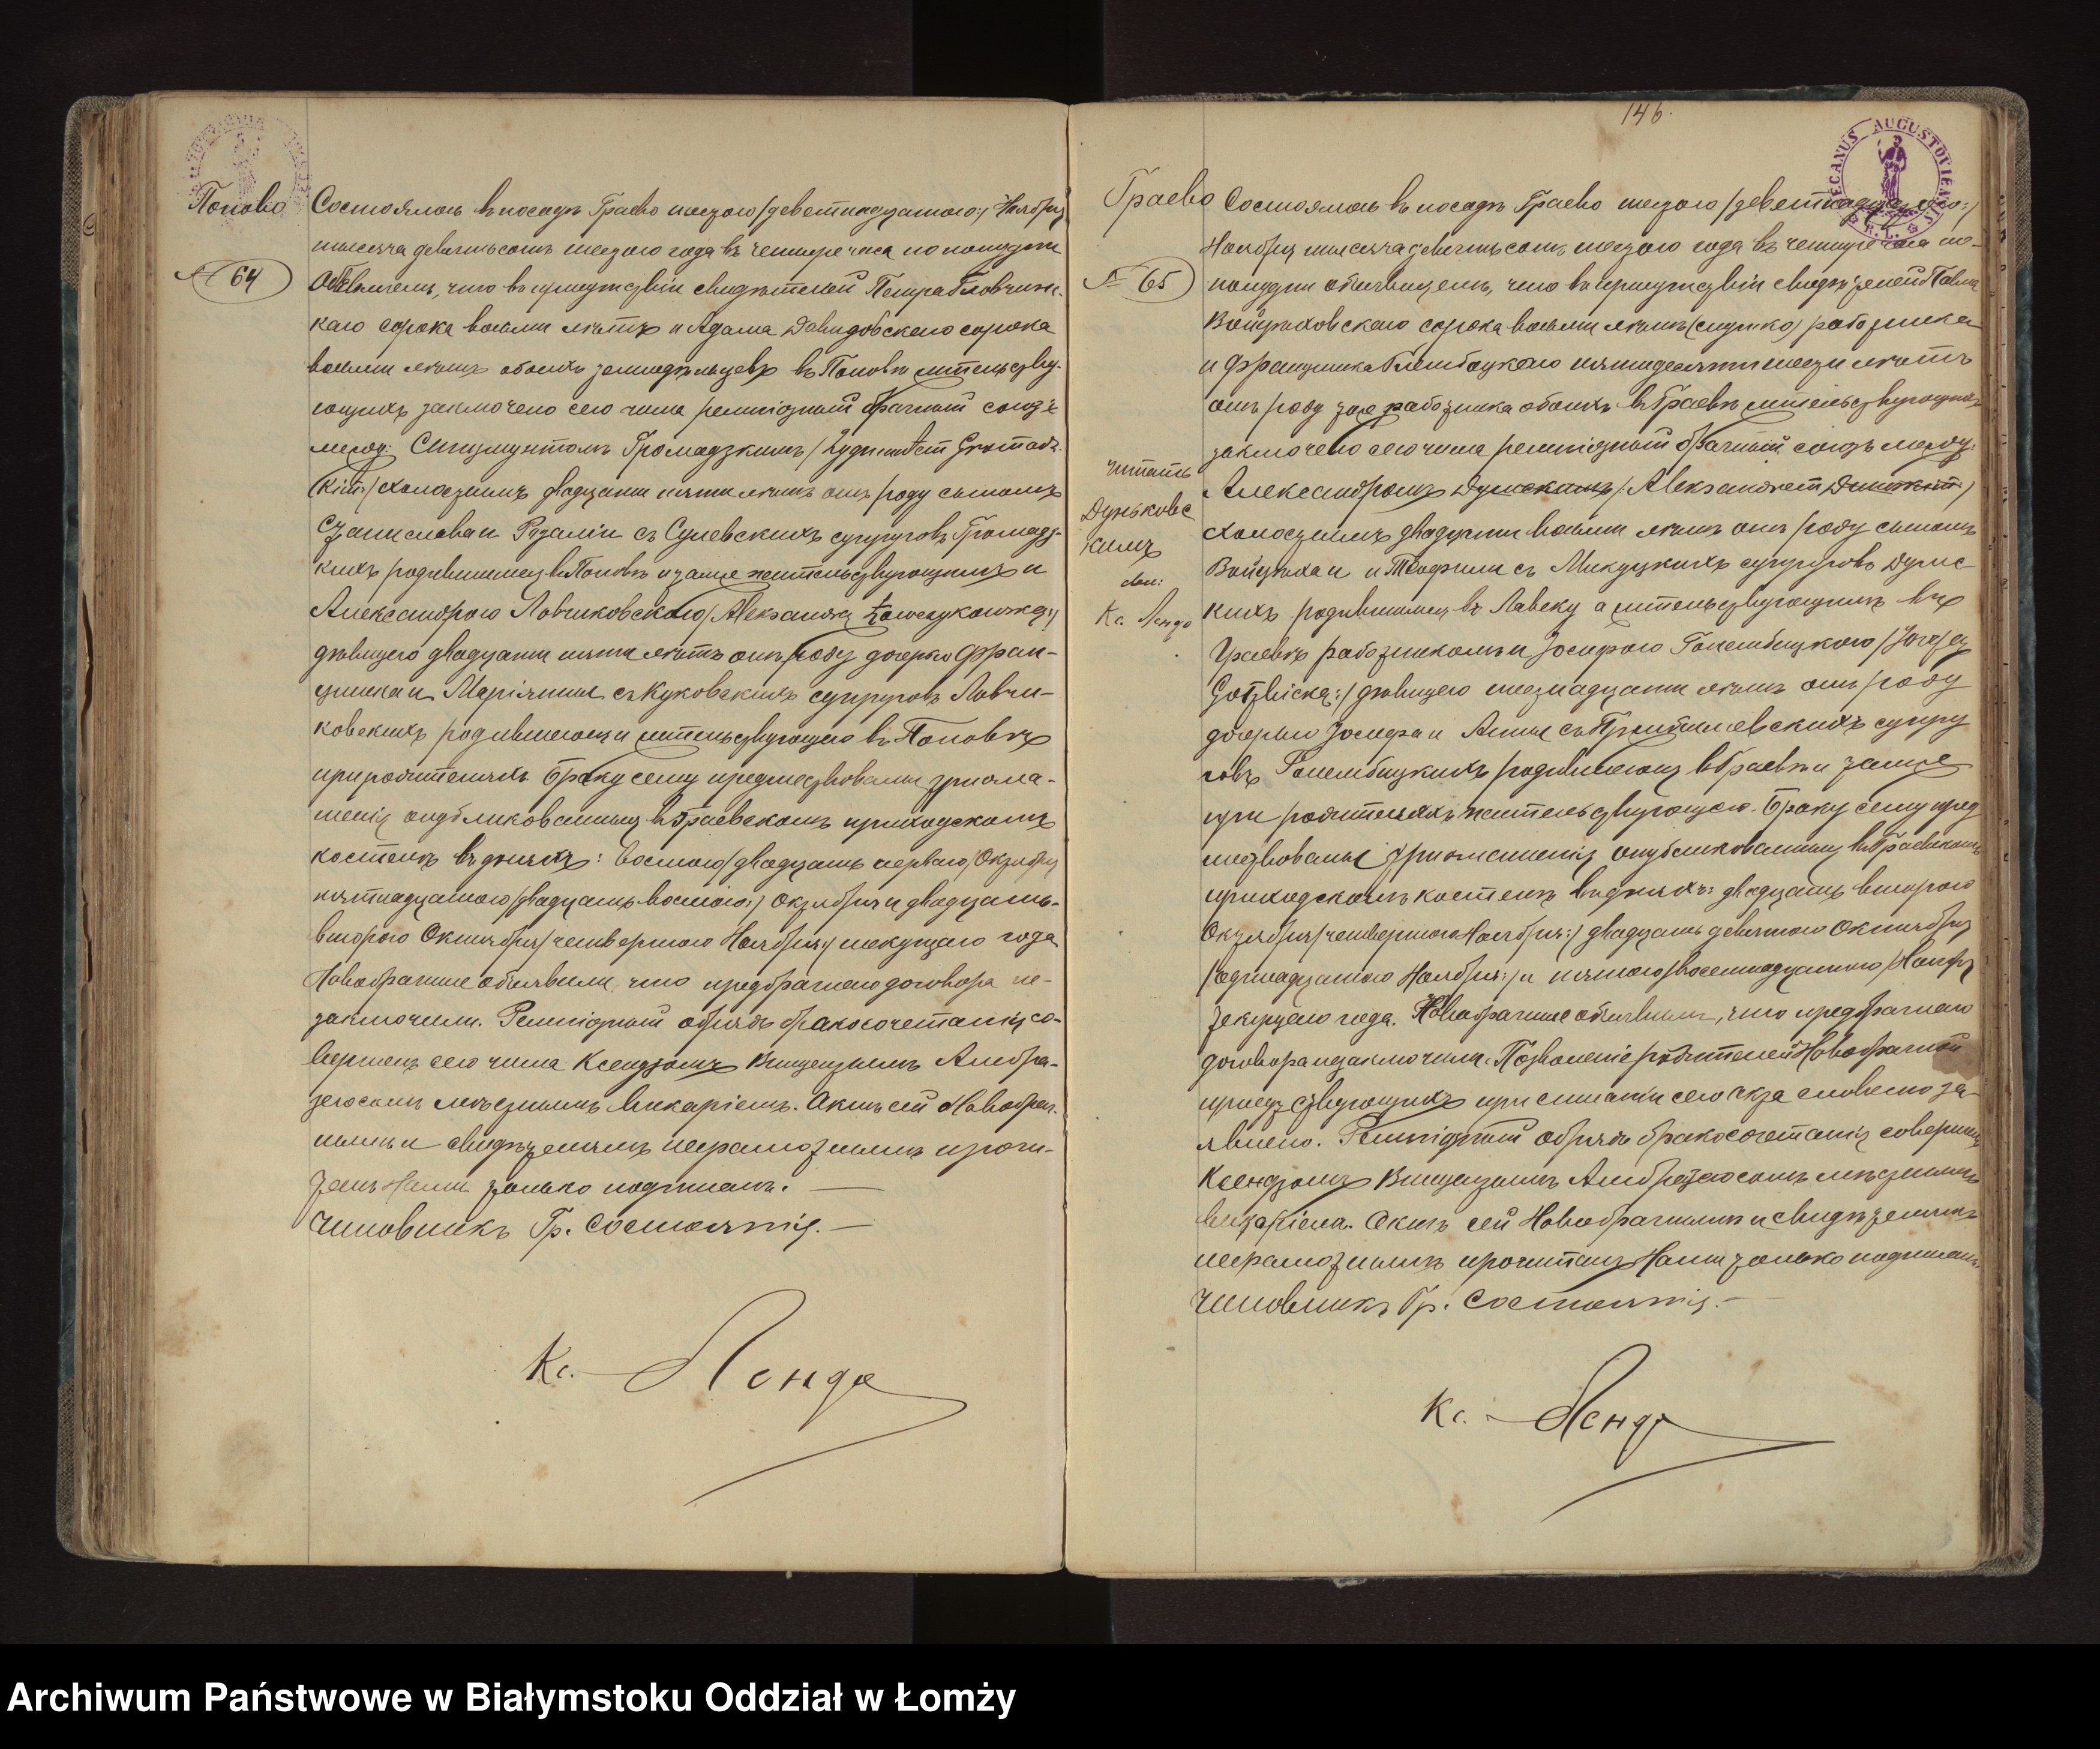 Попово
№ 64
Состоялось въ посадѣ Граево шестого /девятнадцатого:/ Ноября
тысяча девятьсотъ шестого года въ четыре часа по полудни
Объявляемъ, что въ присутствіи свидѣтелей Петра
каго сорока восьми лѣтъ и Адама Давидовскаго сорока
восьми лѣтъ обоихъ земледѣльцевъ въ Поповѣ жительству-
ющихъ заключено сего числа религіозный брачный союзъ
между: Сигизмунтомъ Громадзкимъ /Zygmuntem Gromadz-
kim:/ холостымъ двадцати пяти лѣтъ отъ роду сыномъ
Станислава и Розаліи съ Сулевскихъ супруговъ Громадз-
кихъ родившимся въ Поповѣ и тамже жительствующимъ и
Александрою Ловчиковскою /Aleksandrą
дѣвицею двадцати пяти лѣтъ отъ роду дочерью Фран-
цишка и Маріянны съ Куковскихъ супруговъ Ловчи-
ковскихъ родившеюся и жительствующею въ Поповѣ
при родителяхъ. Браку сему предшествовали три огла-
шенія опубликованныя въ Граевскомъ приходскомъ
костелѣ въ дняхъ: восьмого /двадцать перваго/ Октября
пятнадцатого /двадцать восьмого:/ Октября и двадцать-
второго Октября /четвертого Ноября:/ текущаго года
Новобрачные объявили, что предбрачнаго договора не-
заключили. Религіозный обрядъ бракосочетанія со-
вершенъ сего числа Ксендзомъ Винцентымъ Амбра-
местнымъ викаріемъ. Актъ сей Новобрач-
нымъ и свидѣтелямъ неграмотнымъ прочи-
танъ Нами только подписанъ. —
Чиновникъ Гр. Состоянія. —
Кс. Лендо
146.
DECANUS AUGUSTOVIENSIS
Граево
№ 65
Состоялось въ посадѣ Граево шестого /девятнадцатого:/
Ноября тысяча девятьсотъ шестого года въ четыре часа по-
полудни объявляемъ, что въ присутствіи свидѣтелей Павла
Войцѣховскаго сорока восьми лѣтъ работника
и Францишка пятидесяти шести лѣтъ
отъ роду тоже работника обоихъ въ Граевѣ жительствующихъ
заключено сего числа религіозный брачный союзъ между:
Александромъ /:Aleksandrem
холостымъ двадцати восьми лѣтъ отъ роду сыномъ
Войцѣха и и Теофили съ Микуцкихъ супруговъ Дунс-
кихъ родившимся въ а жительствующимъ въ
Граевѣ работникомъ и Іосифою Голембицкою /Józefą
дѣвицею шестнадцати лѣтъ отъ роду
дочерью Іосифа и Анны съ супру-
говъ Голембицкихъ родившеюся въ Граевѣ и тамже
при родителяхъ жительствующею. Браку сему пред-
шествовали три оглашенія опубликованныя въ Граевскомъ
приходскомъ костелѣ въ дняхъ: двадцать второго
Октября /четвертого Ноября:/ двадцать девятого Октября
/одиннадцатого Ноября:/ и пятого /восемнадцатого/ Ноября
текущаго года. Новобрачные объявили, что предбрачнаго
договора незаключили. Позволеніе родителей Новобрачной
присутствующихъ при списаніи сего Акта словесно за-
явлено. Религіозный обрядъ бракосочетанія совершенъ
Ксендзомъ Винцентымъ местнымъ
викаріемъ. Актъ сей Новобрачнымъ и свидѣтелямъ
неграмотнымъ прочитанъ Нами только подписанъ
Чиновникъ Гр. Состоянія. —
читать
Дуньковс
кимъ
Кс. Лендо
Кс. Лендо
Archiwum Państwowe w Białymstoku Oddział w Łomży